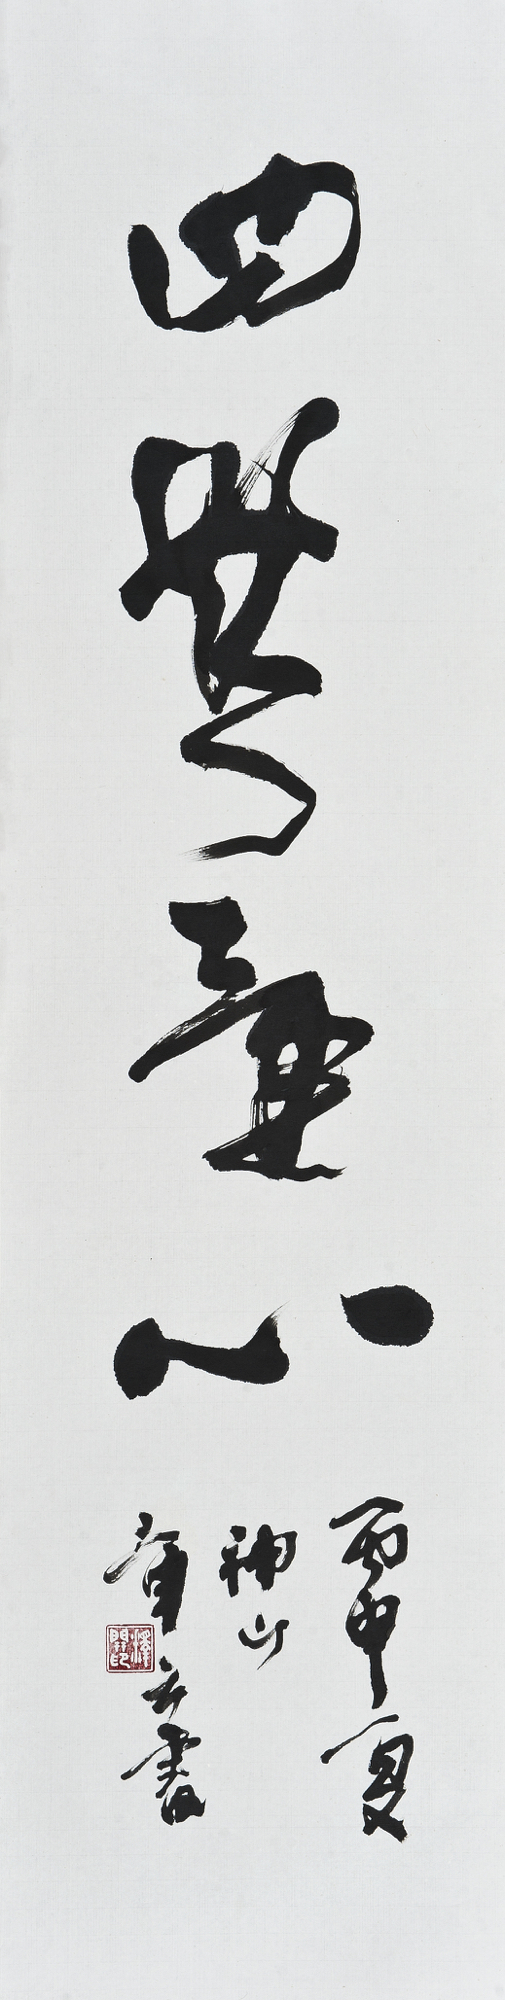 四無量心
丙申夏
神山
章玄書